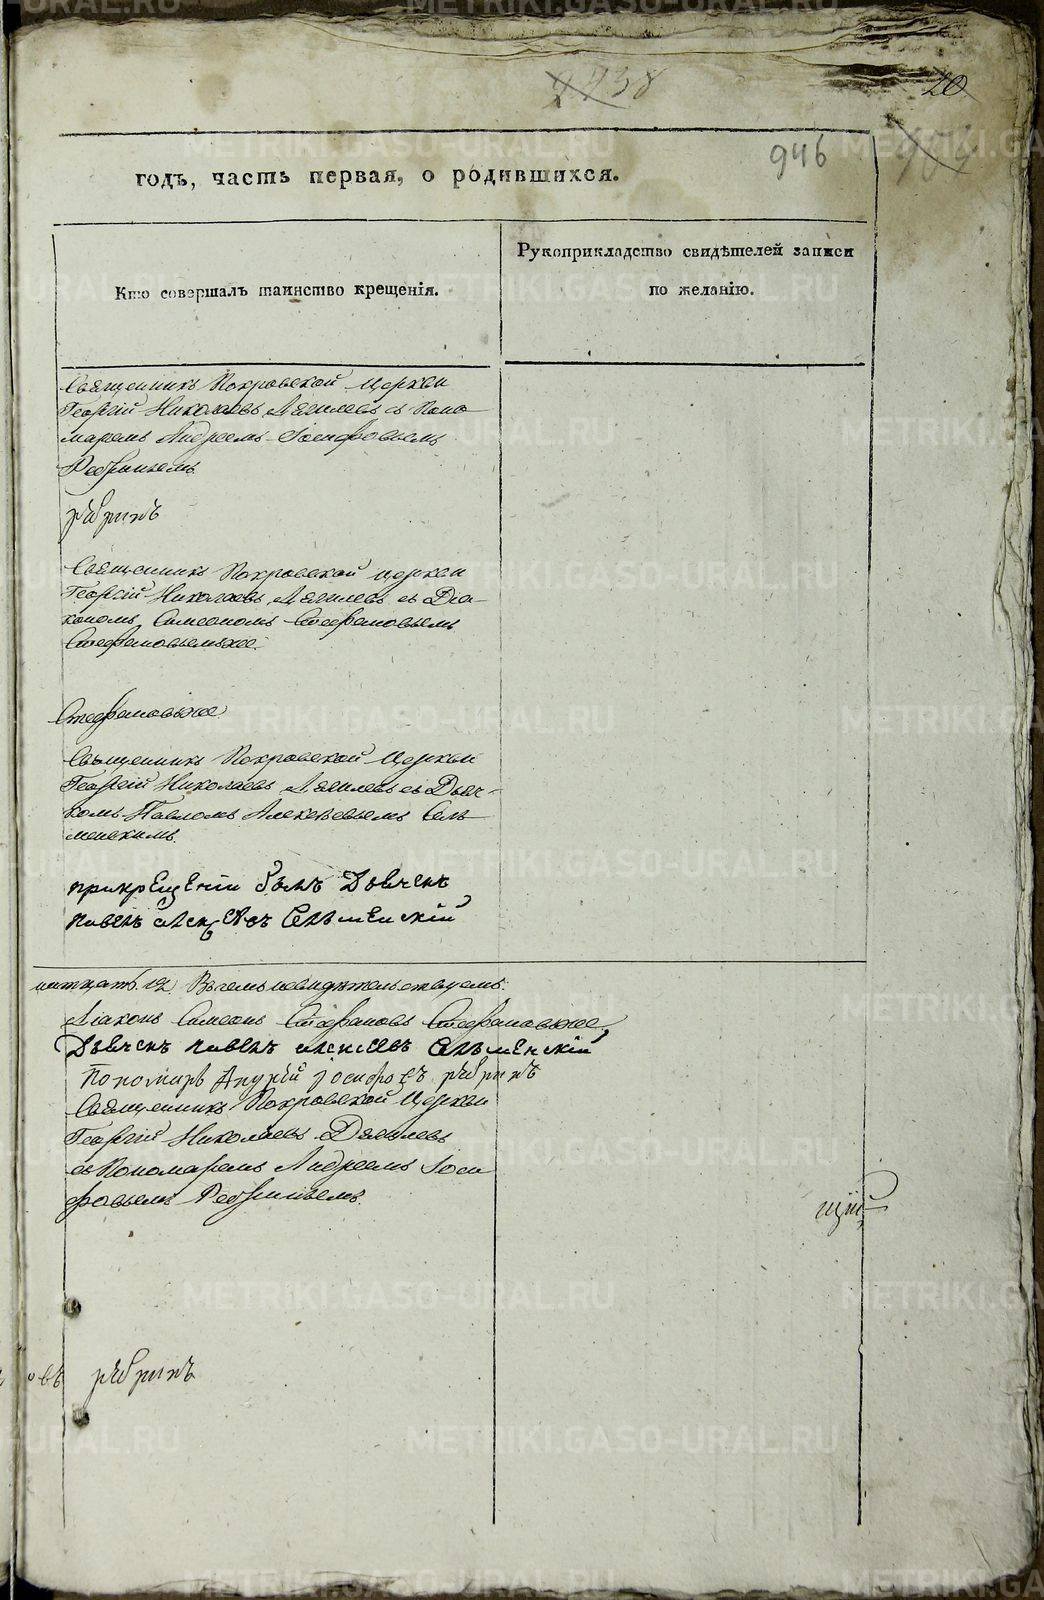 2738
20
946
годъ, часть первая, о родившихся.
Кто совершалъ таинство крещенія.
Рукоприкладство свидѣтелей записи
по желанію.
Священникъ Покровской Церкви
Георгій Николаевъ Дягилевъ съ Поно
маремъ Андреемъ Іосифовымъ
Ребринымъ.
рѣбринъ
Священникъ Покровской Церкви
Георгій Николаевъ Дягилевъ съ Діа
кономъ Симеономъ Стефановымъ
Стефановымъже.
Стефановъже
Священникъ Покровской Церкви
Георгій Николаевъ Дягилевъ съ Дьяч-
комъ Павломъ Алексѣевымъ Сель
менскимъ.
прикрещеніи былъ Дьячекъ
павелъ алексѣевъ Сельменскій
Въ семъ свидѣтельствуемъ:
Діаконъ Симеонъ Стефановъ Стефановъже,
Дьячекъ павелъ алексеевъ Сельменскій
Пономарь Андрѣй Іосифовъ рѣбринъ
Священникъ Покровской Церкви
Георгій Николаевъ Дягилевъ
съ Пономаремъ Андреемъ Іоси
фовымъ Ребринымъ.
щій
овъ рѣбринъ
METRIKI.GASO-URAL.RU